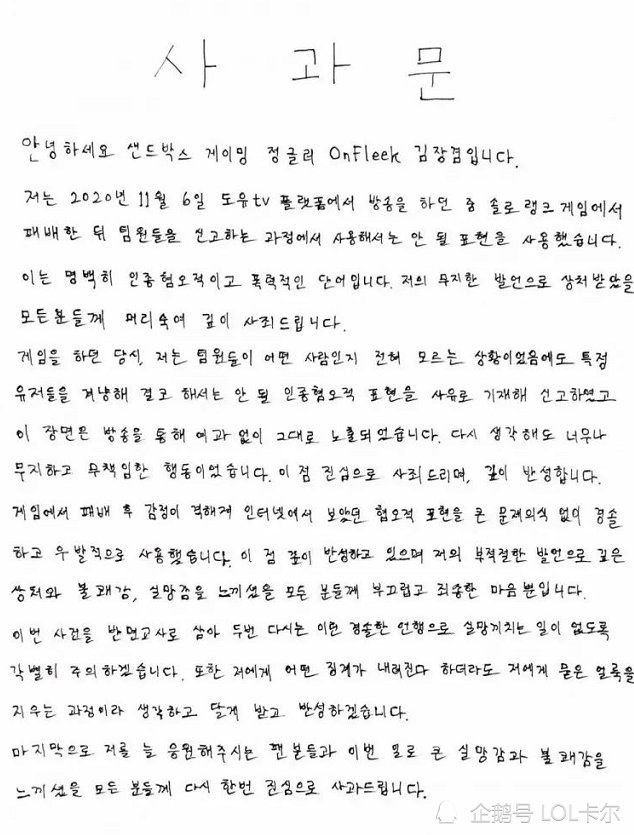 사과문
안녕하세요 샌드박스 게이밍 정글러 OnFleek 김장겸입니다.
저는 2020년 11월 6일 도유tv 플랫폼에서 방송을 하던 중 솔로랭크게임에서
패배한 뒤 팀원들을 신고하는 과정에서 사용해서는 안 될 표현을 사용했습니다.
이는 명백히 인종혐오적이고 폭력적인 단어입니다. 저의 무지한 발언으로 상처받았을
모든분들께 머리숙여 깊이 사죄드립니다.
게임을 하던 당시, 저는 팀원들이 어떤 사람인지 전혀 모르는 상황이었음에도 특정
유저들을 겨냥해 결코 해서는 안 될 인종혐오적 표현을 사유로 기재해 신고하였고
이 장면은 방송을 통해 여과 없이 그대로 노출되었습니다. 다시 생각해도 너무나
무지하고 무책임한 행동이었습니다. 이 점 진심으로 사죄드리며, 깊이 반성합니다.
게임에서 패배 후 감정이 격해져 인터넷에서 보았던 혐오적 표현을 큰 문제의식 없이 경솔
하고 우발적으로 사용했습니다. 이 점 깊이 반성하고 있으며 저의 부적절한 발언으로 깊은
상처와 불쾌감, 실망감을 느끼셨을 모든 분들께 부끄럽고 죄송한 마음뿐입니다.
이번 사건을 반면교사로 삼아 두번 다시는 이런 경솔한 언행으로 실망끼치는 일이 없도록
각별히 주의하겠습니다. 또한 저에게 어떤 징계가 내려진다 하더라도 저에게 묻은 얼룩을
지우는 과정이라 생각하고 달게 받고 반성하겠습니다.
마지막으로 저를 늘 응원해주시는 팬분들과 이번 일로 큰 실망감과 불쾌감을
느끼셨을 모든 분들께 다시 한번 진심으로 사과드립니다.
企鹅号 LOL卡尔